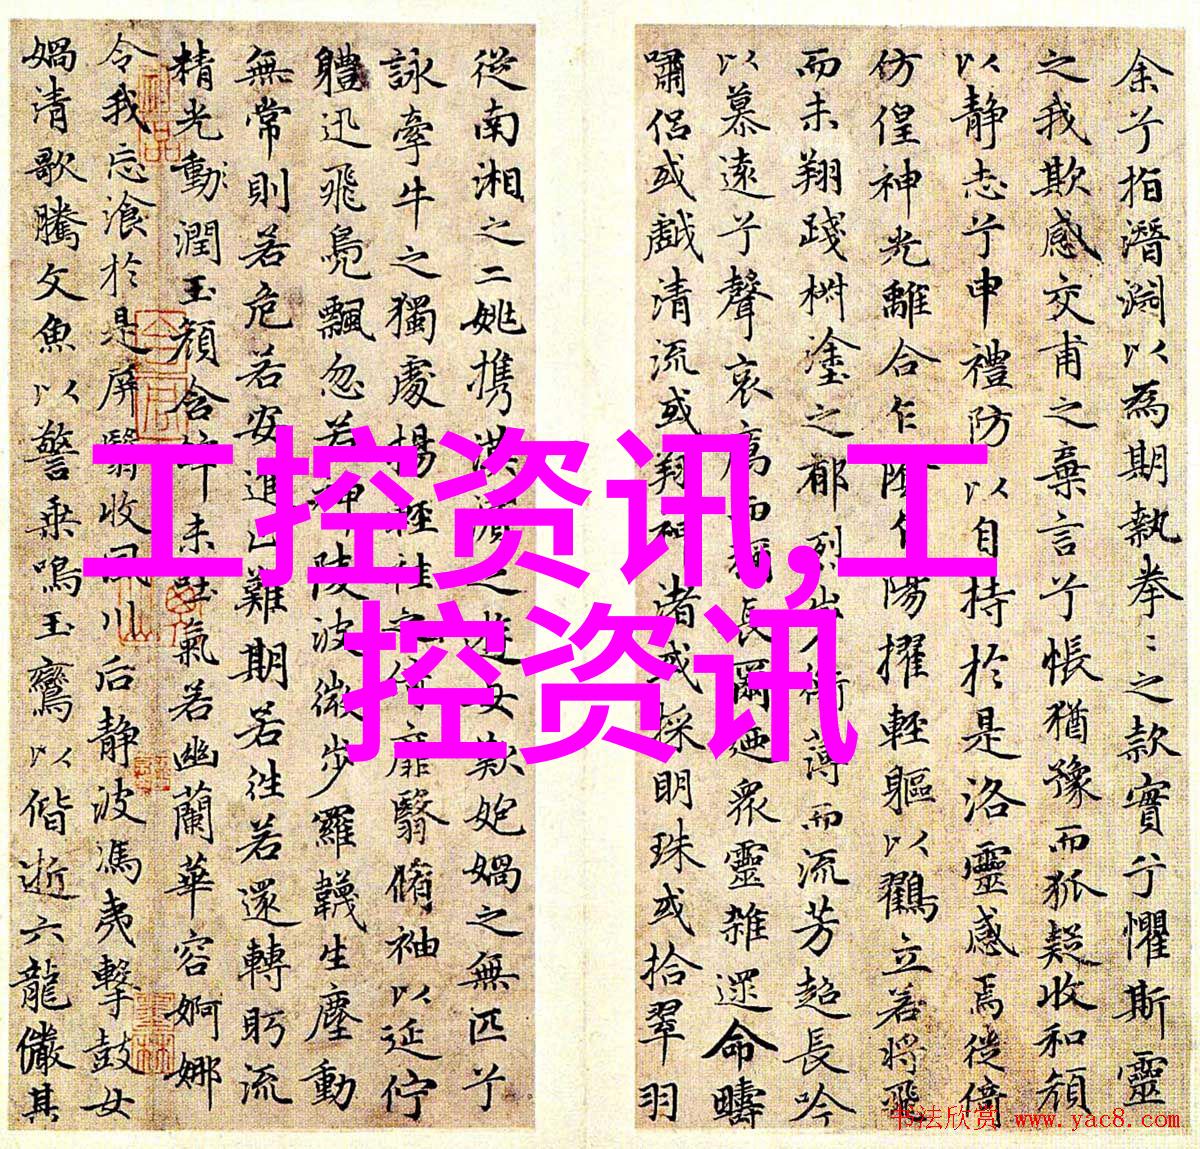 余兮指潛淵以為期執拳〻之款實兮懼斯靈
之我欺感交甫之棄言兮悵猶豫而狐疑收和顏
以静志兮申禮防以自持於是洛靈感焉徙倚
仿偟神光離合乍陰乍陽擢輕軀以鶴立若將飛
而未翔踐椒塗之郁烈步蘅薄而流芳超長吟
以慕遠兮聲哀厲而彌長爾迺衆靈雜遝命疇
嘯侶或戲清流或翔神渚或採明珠或拾翠羽
從南湘之二姚携漢濱之遊女歎匏媧之無匹兮
詠牽牛之獨處揚輕袿之倚靡翳脩袖以延佇
軆迅飛鳧飄忽若神陵波微步羅韈生塵動
無常則若危若安進止難期若往若還轉眄流
精光動潤玉顏含辭未吐氣若幽蘭華容婀娜
令我忘飡於是屏翳收風川后静波馮夷擊鼓女
媧清歌騰文魚以警乘鳴玉鸞以偕逝六龍儼其
工控资讯,工
控资讯
书法欣赏 www.yac8.com